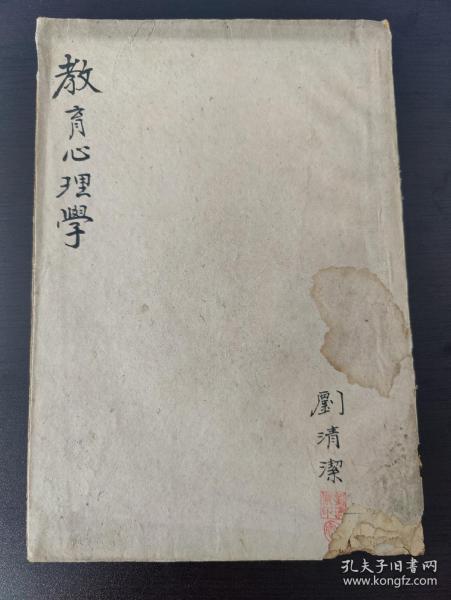 教育心理學
劉清潔
孔夫子旧书网
www.kongfz.com